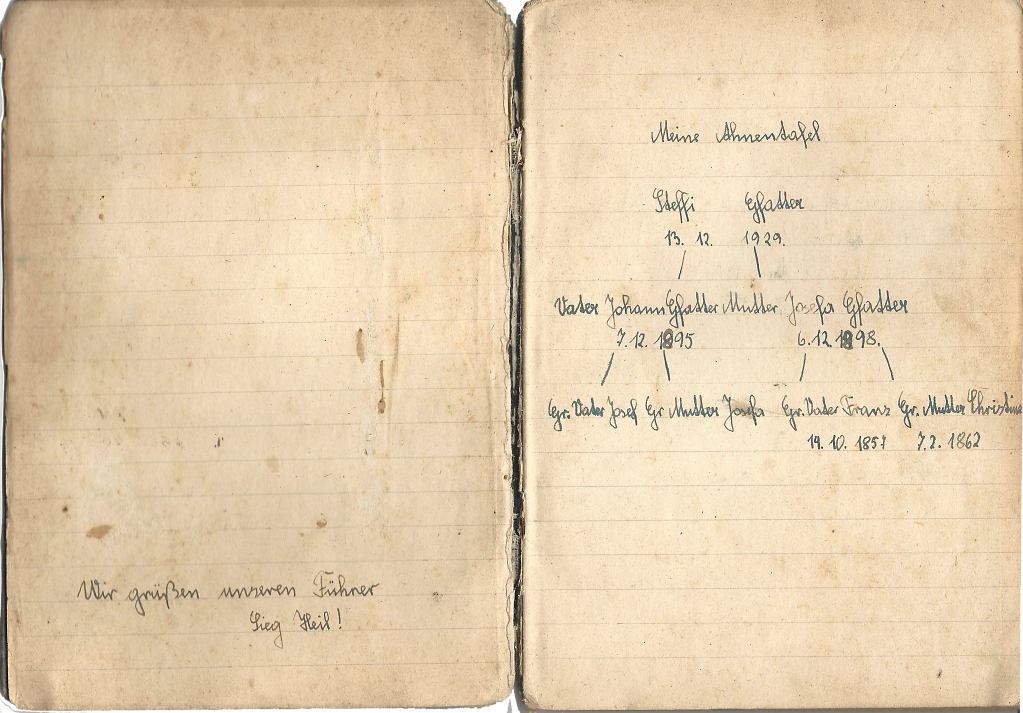 Wir grüßen unseren Führer
Sieg Heil!
Meine Ahnentafel
Steffi Gfatter
13. 12. 1929.
Vater Johann Gfatter Mutter Josefa Gfatter
7. 12. 1895 6. 12. 1898.
Gr. Vater Josef Gr Mutter Josefa Gr. Vater Franz Gr. Mutter Christina
19. 10. 1857 7. 2. 1862